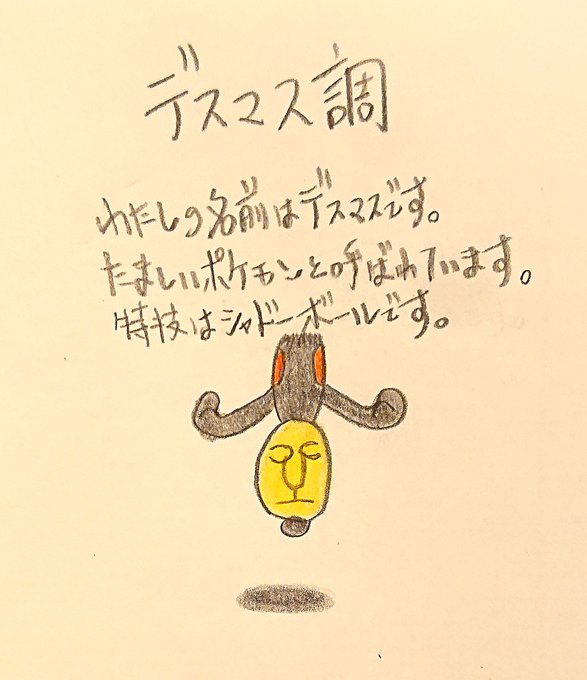 デスマス調
わたしの名前はデスマスです。
たましいポケモンと呼ばれています。
特技はシャドーボールです。